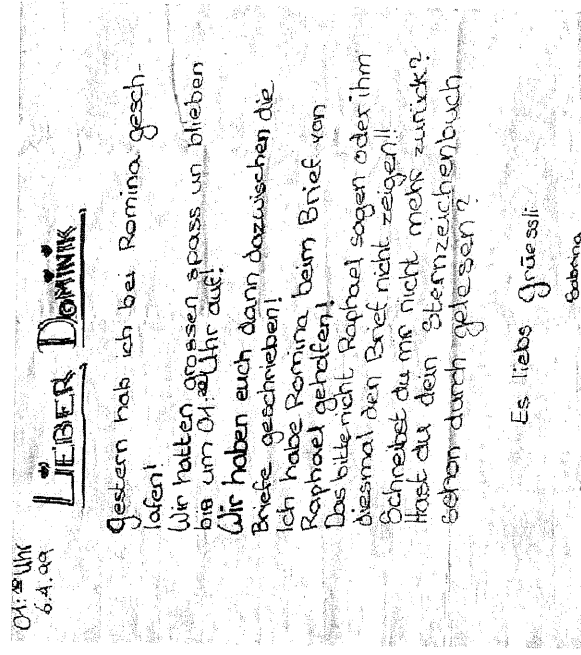 01:⁰⁰ Uhr
6.4.99
LIEBER DOMINIK
Gestern hab ich bei Romina gesch-
lafen!
Wir hatten grossen spass un blieben
bis um 01:⁰⁰ Uhr auf!
Wir haben euch dann dazwischen die
Briefe geschrieben!
Ich habe Romina beim Brief von
Raphael geholfen!
Das bitte nicht Raphael sagen oder ihm
diesmal den Brief nicht zeigen!!
Schreibst du mr nicht mehr zurück?
Hast du dein Sternzeichenbuch
schon durch gelesen?
Es liebs Grüessli
Sabrina